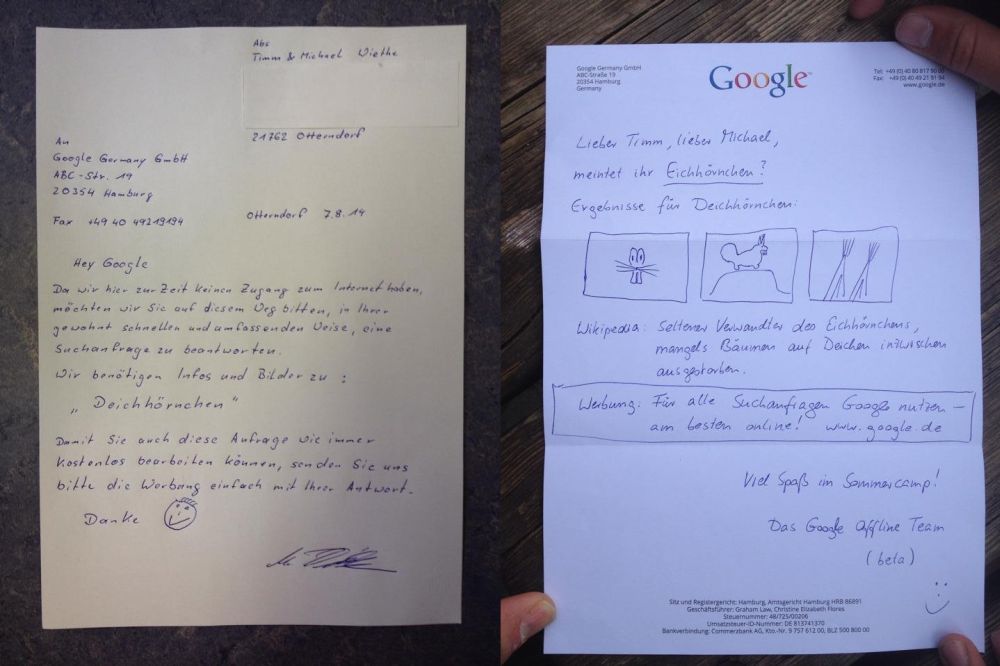 Abs
Timm & Michael Wiethe
21762 Otterndorf
An
Google Germany GmbH
ABC-Str. 19
20354 Hamburg
Fax +49 40 49219194
Otterndorf 7.8.14
Hey Google
Da wir hier zur Zeit keinen Zugang zum Internet haben,
möchten wir Sie auf diesem Weg bitten, in Ihrer
gewohnt schnellen und umfassenden Weise, eine
Suchanfrage zu beantworten.
Wir benötigen Infos und Bilder zu :
„Deichhörnchen"
Damit Sie auch diese Anfrage wie immer
Kostenlos bearbeiten können, senden Sie uns
bitte die Werbung einfach mit Ihrer Antwort.
Danke
Google Germany GmbH
ABC-Straße 19
20354 Hamburg
Germany
Google
Tel: +49 (0) 40 80 817 90 00
Fax: +49 (0) 40 49 21 91 94
www.google.de
Lieber Timm, lieber Michael,
meintet ihr Eichhörnchen?
Ergebnisse für Deichhörnchen:
Wikipedia: Seltener Verwandter des Eichhörnchens,
mangels Bäumen auf Deichen inzwischen
ausgestorben.
Werbung: Für alle Suchanfragen Google nutzen –
am besten online! www.google.de
Viel Spaß im Sommercamp!
Das Google Offline Team
(beta)
Sitz und Registergericht: Hamburg, Amtsgericht Hamburg HRB 86891
Geschäftsführer: Graham Law, Christine Elizabeth Flores
Steuernummer: 48/725/00206
Umsatzsteuer-ID-Nummer: DE 813741370
Bankverbindung: Commerzbank AG, Kto.-Nr. 9 757 612 00, BLZ 500 800 00